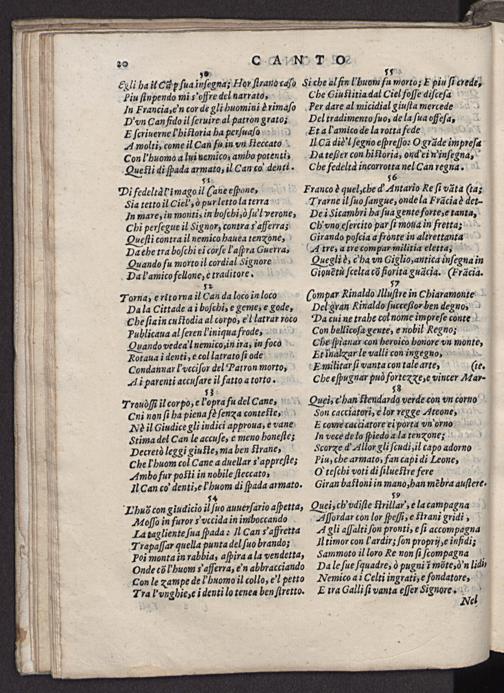 20
CANTO
50
Egli ha il Cã p sua insegna; Hor strano caso
Piu stupendo mi s'offre del narrato,
In Francia, e'n cor de gli huomini è rimaso
D'vn Can fido il seruire al patron grato;
E scriuerne l'historia ha persuaso
A molti, come il Can fu in vn steccato
Con l'huomo a lui nemico; ambo potenti,
Questi di spada armato, il Can co' denti.
51
Di fedeltà l'imago il Cane espone,
Sia tetto il Ciel', ò pur letto la terra
In mare, in monti, in boschi, ò su'l verone,
Chi persegue il Signor, contra s'afferra;
Questi contra il nemico hauea tenzone,
Da che tra boschi ei corse l'aspra Guerra,
Quando fu morto il cordial Signore
Da l'amico fellone, e traditore.
52
Torna, e ritorna il Can da loco in loco
Da la Cittade a i boschi, e geme, e gode,
Che sia in custodia al corpo, e'l latrar roco
Publicaua al seren l'iniqua frode,
Quando vedea'l nemico, in ira, in foco
Rotaua i denti, e col latrato si ode
Condannar l'vccisor del Patron morto,
A i parenti accusare il fatto a torto.
53
Trouossi il corpo, e l'opra fu del Cane,
Cui non si ha piena fè senza conteste,
Nè il Giudice gli indici approua, e vane
Stima del Can le accuse, e meno honeste;
Decretò leggi giuste, ma ben strane,
Che l'huom col Cane a duellar s'appreste;
Ambo fur posti in nobile steccato,
Il Can co' denti, e l'huom di spada armato.
54
L'huõ con giudicio il suo auuersario aspetta,
Mosso in furor s'uccida in imboccando
La tagliente sua spada: Il Can s'affretta
Trapassar quella punta del suo brando;
Poi monta in rabbia, aspira a la vendetta,
Onde cõ l'huom s'afferra, e'n abbracciando
Con le zampe de l'huomo il collo, e'l petto
Tra l'vnghie, e i denti lo tenea ben stretto.
55
Si che al fin l'huom fu morto; E piu si crede,
Che Giustitia dal Ciel fosse discesa
Per dare al micidial giusta mercede
Del tradimento suo, de la sua offesa,
Et a l'amico de la rotta fede
Il Cã diè'l segno espresso: O grãde impresa
Da tesser con historia, ond'ei n'insegna,
Che fedeltà incorrotta nel Can regna.
56
Franco è quel, che d'Antario Re si vãta (ta;
Trarne il suo sangue, onde la Frãcia è det-
De i Sicambri ha sua gente forte, e tanta,
Ch'vno esercito par si moua in fretta;
Girando poscia a fronte in altrettanta
A tre, a tre compar militia eletta;
Quegli è, c'ha vn Giglio, antica insegna in
Giouẽtù scelta cõ fiorita guãcia. (Frãcia.
57
Compar Rinaldo Illustre in Chiaramonte
Del gran Rinaldo successor ben degno,
Da cui ne trahe col nome imprese conte
Con bellicosa gente, e nobil Regno;
Che spianar con heroico honore vn monte,
Et inalzar le valli con ingegno,
E militar si vanta con tale arte, (te.
Che espugnar può fortezze, e vincer Mar-
58
Quei, c'han stendardo verde con vn corno
Son cacciatori, e lor regge Ateone,
E come cacciatore ei porta vn'orno
In vece de lo spiedo a la tenzone;
Scorze d'Allor gli scudi, il capo adorno
Piu, che armato, fan capi di Leone,
O' teschi voti di siluestre fere
Giran bastoni in mano, han mẽbra austere.
59
Quei, ch'vdiste strillar', e la campagna
Assordar con lor spessi, e strani gridi,
A gli assalti son pronti, e si accompagna
Il timor con l'ardir; son proprij, e infidi;
Sammoto il loro Re non si scompagna
Da le sue squadre, ò pugni ĩ mõte, ò'n lidi
Nemico a i Celti ingrati, e fondatore,
E tra Galli si vanta esser Signore.
Nel